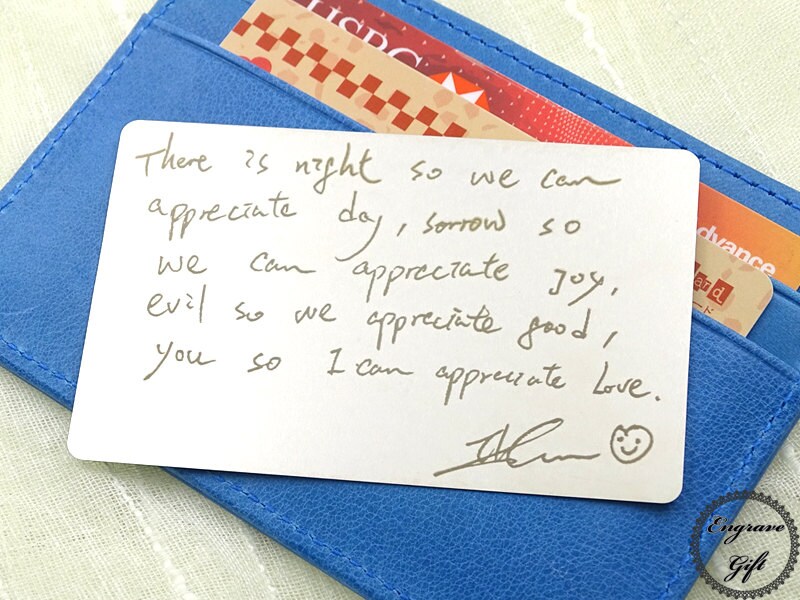 HSBC
dvance
ard
ード
There is night so we can
appreciate day, sorrow so
we can appreciate joy,
evil so we appreciate good,
you so I can appreciate Love.
Engrave
Gift